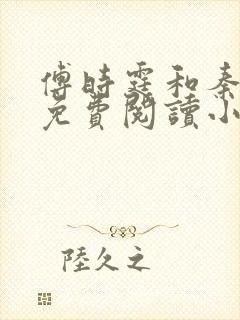 傅時霆和秦
免費閱讀小
陸久之